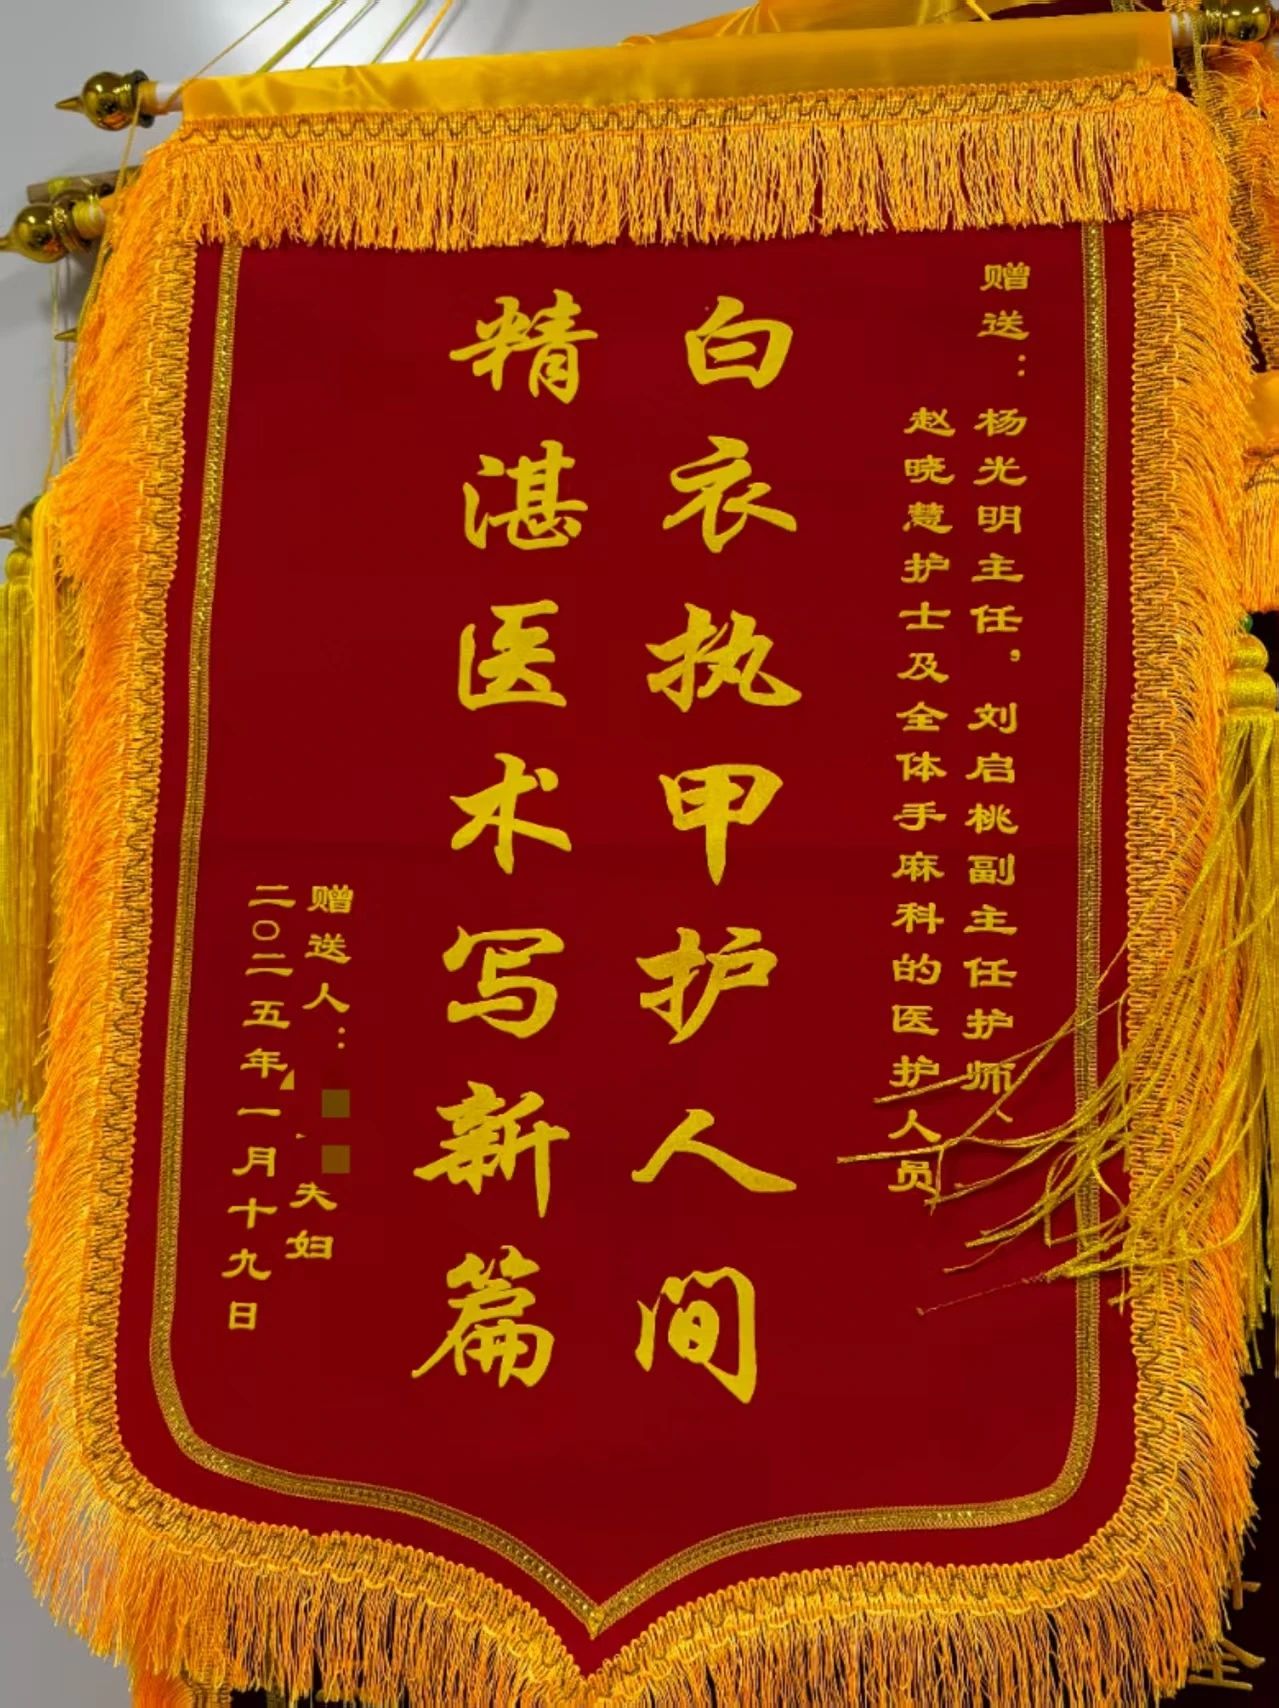 赠送：杨光明主任，刘启桃副主任护师、
赵晓慧护士及全体手麻科的医护人员
白衣执甲护人间
精湛医术写新篇
赠送人：
夫妇
二〇二五年一月十九日